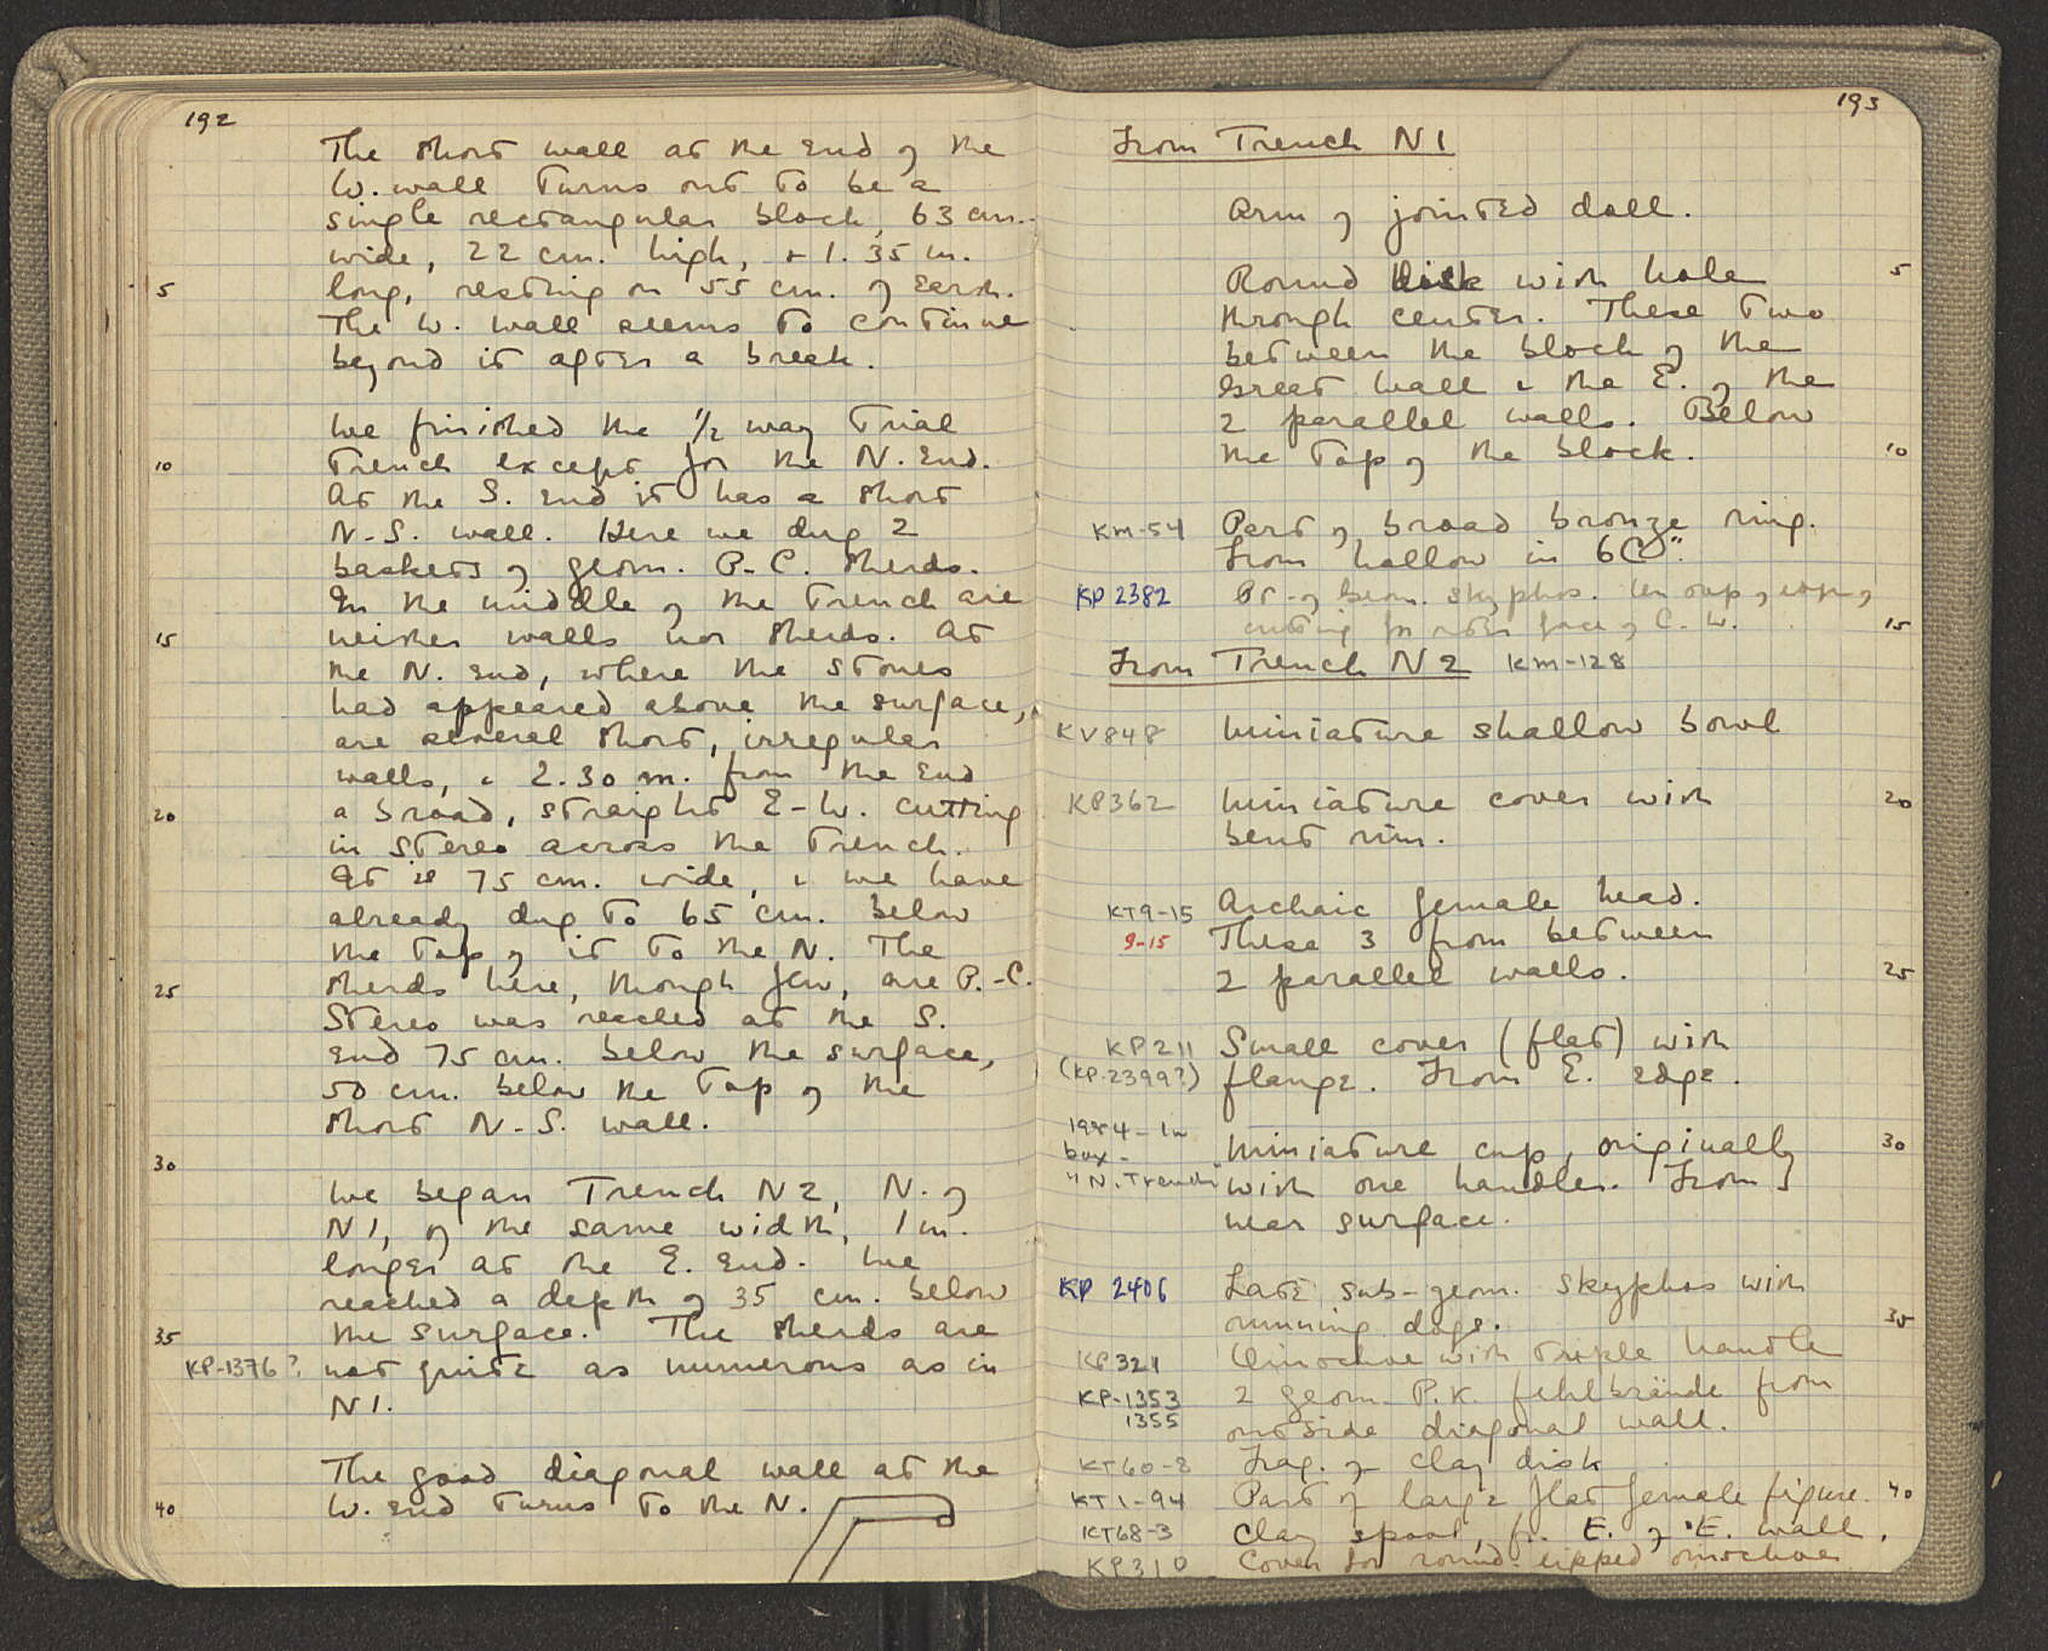 192
The short wall at the end of the
W. wall turns out to be a
single rectangular block, 63 cm.
wide, 22 cm. high, + 1.35 m.
5 long, resting on 55 cm. of earth.
The W. wall seems to continue
beyond it after a break.
We finished the 1/2 way trial
10 trench except for the N. end.
At the S. end it has a short
N-S. wall. Here we dug 2
baskets of geom. P-C. sherds.
In the middle of the trench are
15 neither walls nor sherds. At
the N. end, where the stones
had appeared above the surface,
are several short, irregular
walls, & 2.30 m. from the end
20 a broad, straight E-W. cutting
in stereo across the trench.
It is 75 cm. wide, & we have
already dug to 65 cm. below
the top of it to the N. The
25 sherds here, though few, are P.-C.
Stereo was reached at the S.
end 75 cm. below the surface,
50 cm. below the top of the
short N-S. wall.
30
We began Trench N2, N. of
N1, of the same width, 1 m.
longer at the E. end. We
reached a depth of 35 cm. below
35 the surface. The sherds are
KP-1376? not quite as numerous as in
N1.
The good diagonal wall at the
40 W. end turns to the N.
193
From Trench N1
Arm of jointed doll.
Round disk with hole 5
through center. These two
between the block of the
Great Wall & the E. of the
2 parallel walls. Below
the top of the block. 10
KM-54 Part of broad bronze ring.
From hollow in 6C".
KP 2382 Pt. of Geom. skyphos.
cutting for outer face of C. W. 15
From Trench N2 KM-128
KV848 Miniature shallow bowl
KP362 Miniature cover with 20
bent rim.
KT9-15 Archaic female head.
9-15 These 3 from between
2 parallel walls. 25
KP211 Small cover (flat) with
(KP-2399?) flange. From E. edge.
1984 - In
box - Miniature cup, originally 30
"N. Trench" with one handle. From
near surface.
KP 2406 Late sub-geom. skyphos with
running dogs. 35
KP321 Oinochoe with triple handle
KP-1353 2 geom. P.K. fehlbrände from
1355 outside diagonal wall.
KT60-2 Frag. of clay disk
KT1-94 Part of large flat female figure. 40
KT68-3 Clay spool, fr. E. of E. wall.
KP310 Cover for round-lipped oinochoe